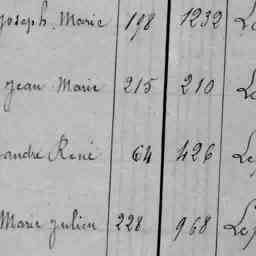 Joseph Marie 198 1232 Le
Jean Marie 215 210 Le
andre René 64 426 Le
Marie Julien 228 968 Le